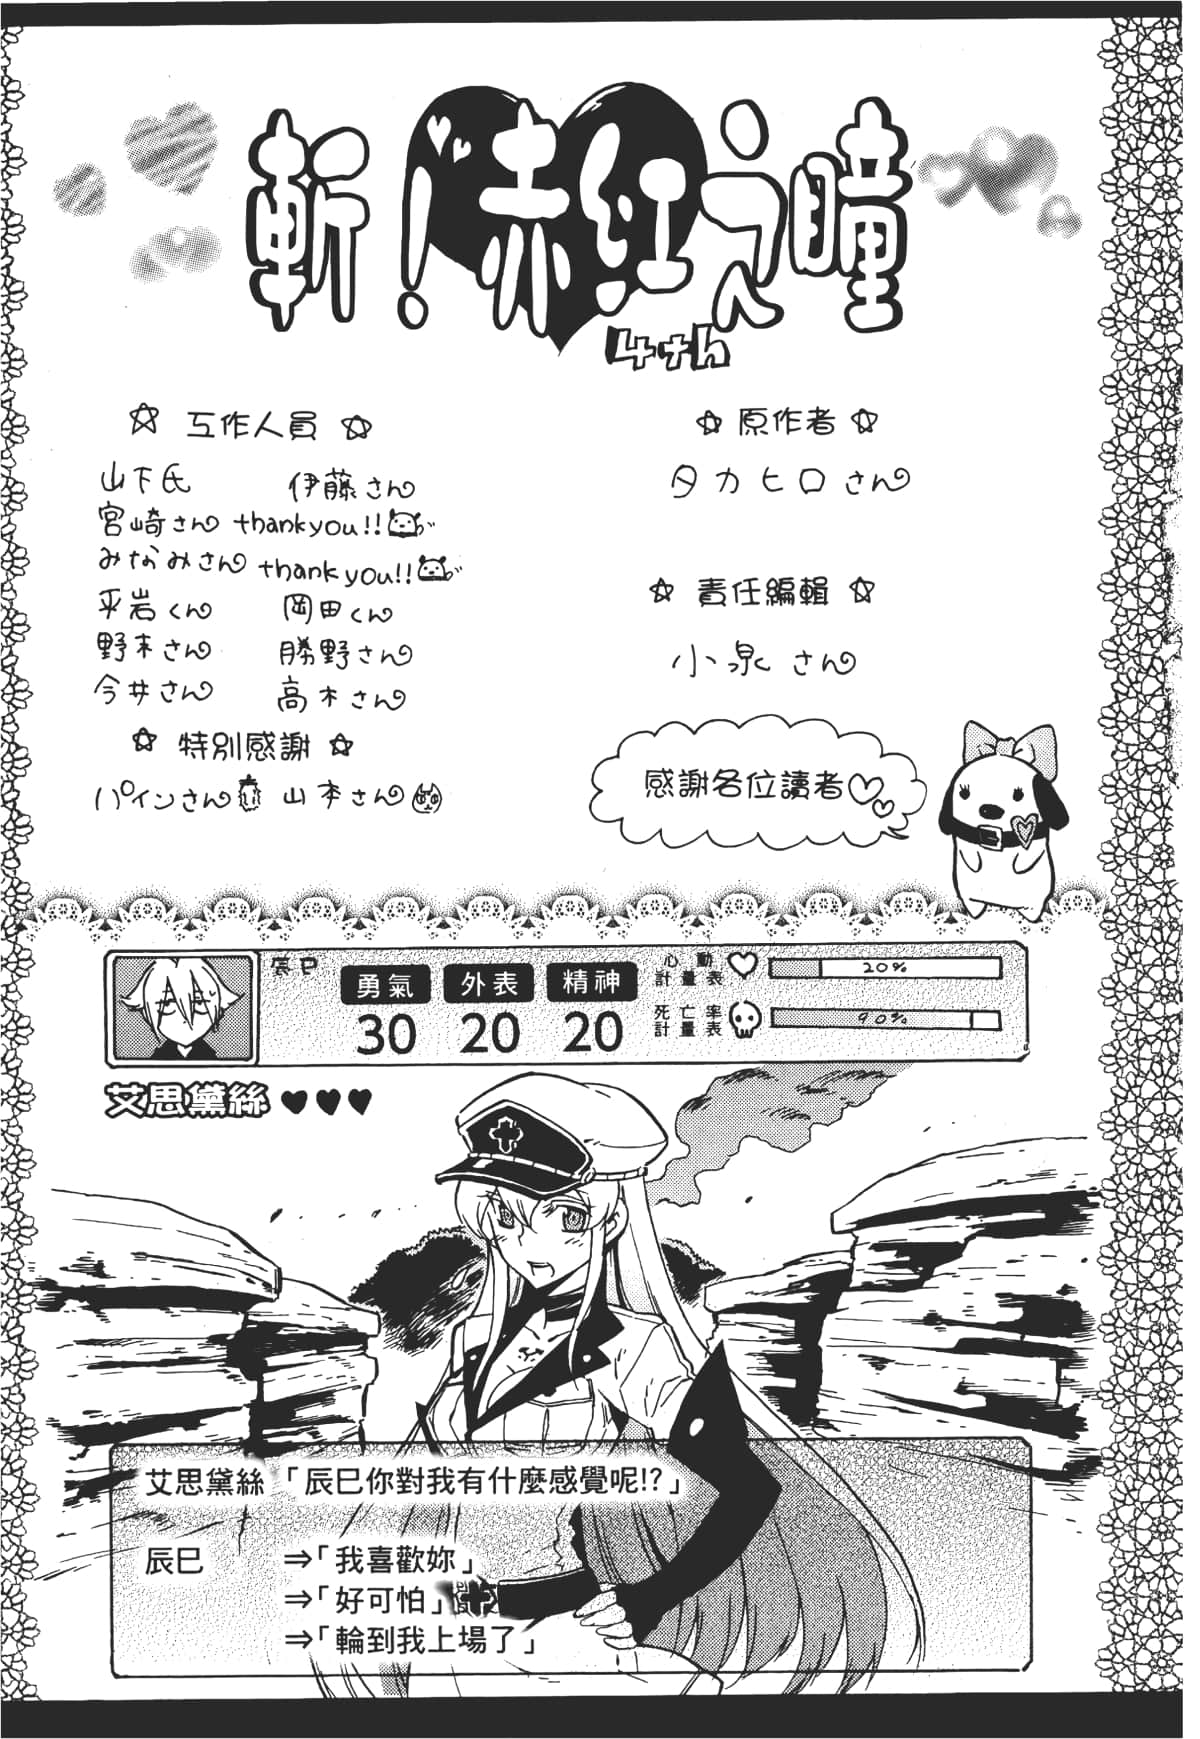 斬！赤紅之瞳
4th
☆ 工作人員 ☆
山下氏 伊藤さん
宮崎さん thankyou!!
みなみさん thankyou!!
平岩くん 岡田くん
野木さん 勝野さん
今井さん 高木さん
☆ 特別感謝 ☆
パインさん 山本さん
☆ 原作者 ☆
タカヒロさん
☆ 責任編輯 ☆
小泉さん
感謝各位讀者♡♡
辰巳
勇氣 外表 精神
30 20 20
心動計量表 20%
死亡率計量表 90%
艾思黛絲 ♥♥♥
艾思黛絲「辰巳你對我有什麼感覺呢!?」
辰巳 ⇒「我喜歡妳」
⇒「好可怕」
⇒「輪到我上場了」